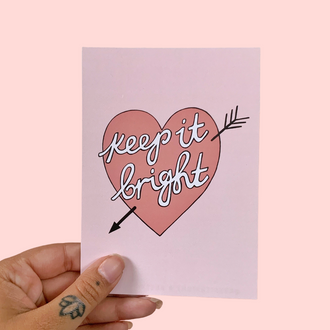 keep it
bright